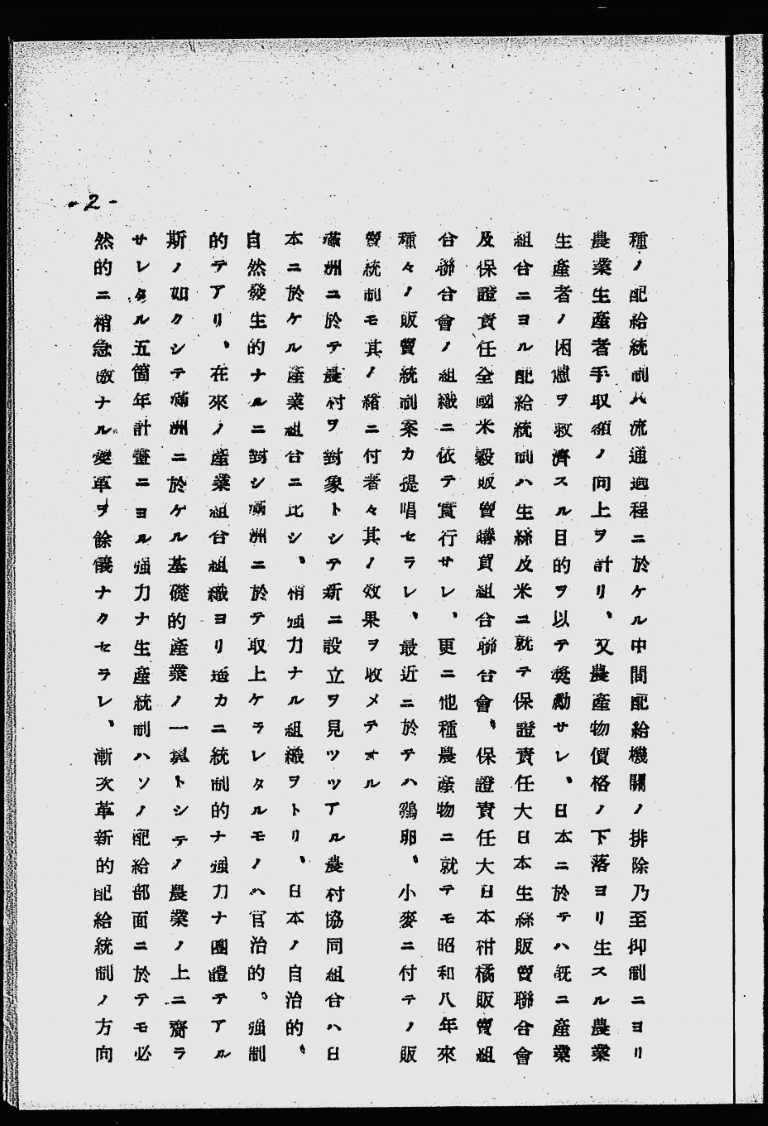 種ノ配給統制ハ流通過程ニ於ケル中間配給機關ノ排除乃至抑制ニヨリ
農業生産者手取額ノ向上ヲ計リ、又農産物價格ノ下落ヨリ生スル農業
生産者ノ困憊ヲ救濟スル目的ヲ以テ奬勵サレ、日本ニ於テハ既ニ産業
組合ニヨル配給統制ハ生絲及米ニ就テ保證責任大日本生絲販賣聯合會
及保證責任全國米穀販賣購買組合聯合會、保證責任大日本柑橘販賣組
合聯合會ノ組織ニ依テ實行サレ、更ニ他種農産物ニ就テモ昭和八年來
種々ノ販賣統制案カ提唱セラレ、最近ニ於テハ鷄卵、小麥ニ付テノ販
賣統制モ其ノ緒ニ付着々其ノ效果ヲ收メテオル
滿洲ニ於テ農村ヲ對象トシテ新ニ設立ヲ見ツツアル農村協同組合ハ日
本ニ於ケル産業組合ニ比シ、稍強力ナル組織ヲトリ、日本ノ自治的、
自然發生的ナルニ對シ滿洲ニ於テ取上ケラレタルモノハ官治的、強制
的テアリ、在來ノ産業組合組織ヨリ遙カニ統制的ナ強力ナ團體テアル
斯ノ如クシテ滿洲ニ於ケル基礎的産業ノ一翼トシテノ農業ノ上ニ齎ラ
サレタル五箇年計畫ニヨル強力ナ生産統制ハソノ配給部面ニ於テモ必
然的ニ稍急激ナル變革ヲ餘儀ナクセラレ、漸次革新的配給統制ノ方向
-2-